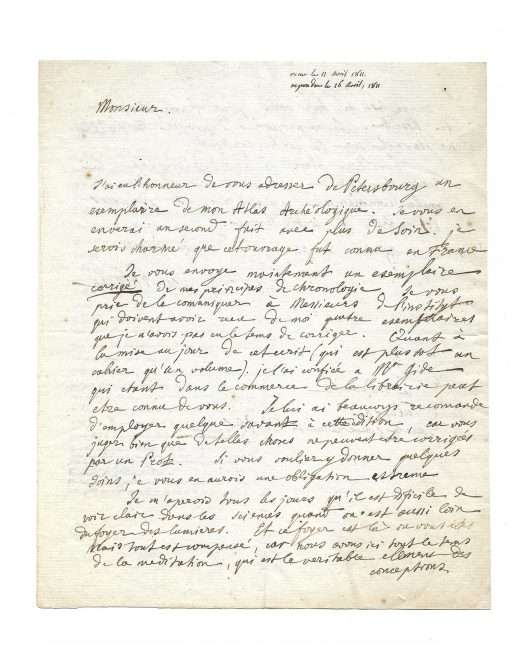 recu le 11 Avril 1811.
repondu le 26 Avril, 1811
Monsieur.
J'ai eu l'honneur de vous adresser de Petersbourg un
exemplaire de mon Atlas Archéologique. Je vous en
enverai un second fait avec plus de soin. je
serois charmé que cet ouvrage fut connu en France
Je vous envoye maintenant un exemplaire
corrigé de mes principes de chronologie. Je vous
prie de le comuniquer à Messieurs de l'institut
qui doivent avoir recu de moi quatre exemplaires
que je n'avois pas eu le tems de corriger. Quant à
la mise au jour de cet ecrit (qui est plus tot un
cahier qu'un volume). je l'ai confiée a Mr Gide
qui etant dans le commerce de la librairie peut
etre connu de vous. Je lui ai beaucoup recomandé
d'employer quelque savant à cette edition, car vous
jugez bien que de telles choses ne peuvent etre corrigés
par un Prote. Si vous vouliez y donner quelques
soins, je vous en aurois une obligation extreme
Je m'aperçois tous les jours qu'il est dificile de
voir clair dans les sciences quand on est aussi loin
du foyer des lumieres. Et ce foyer est là ou vous etes
Mais tout est compensé, car nous avons ici tout le tems
de la meditation, qui est le veritable element des
conceptions